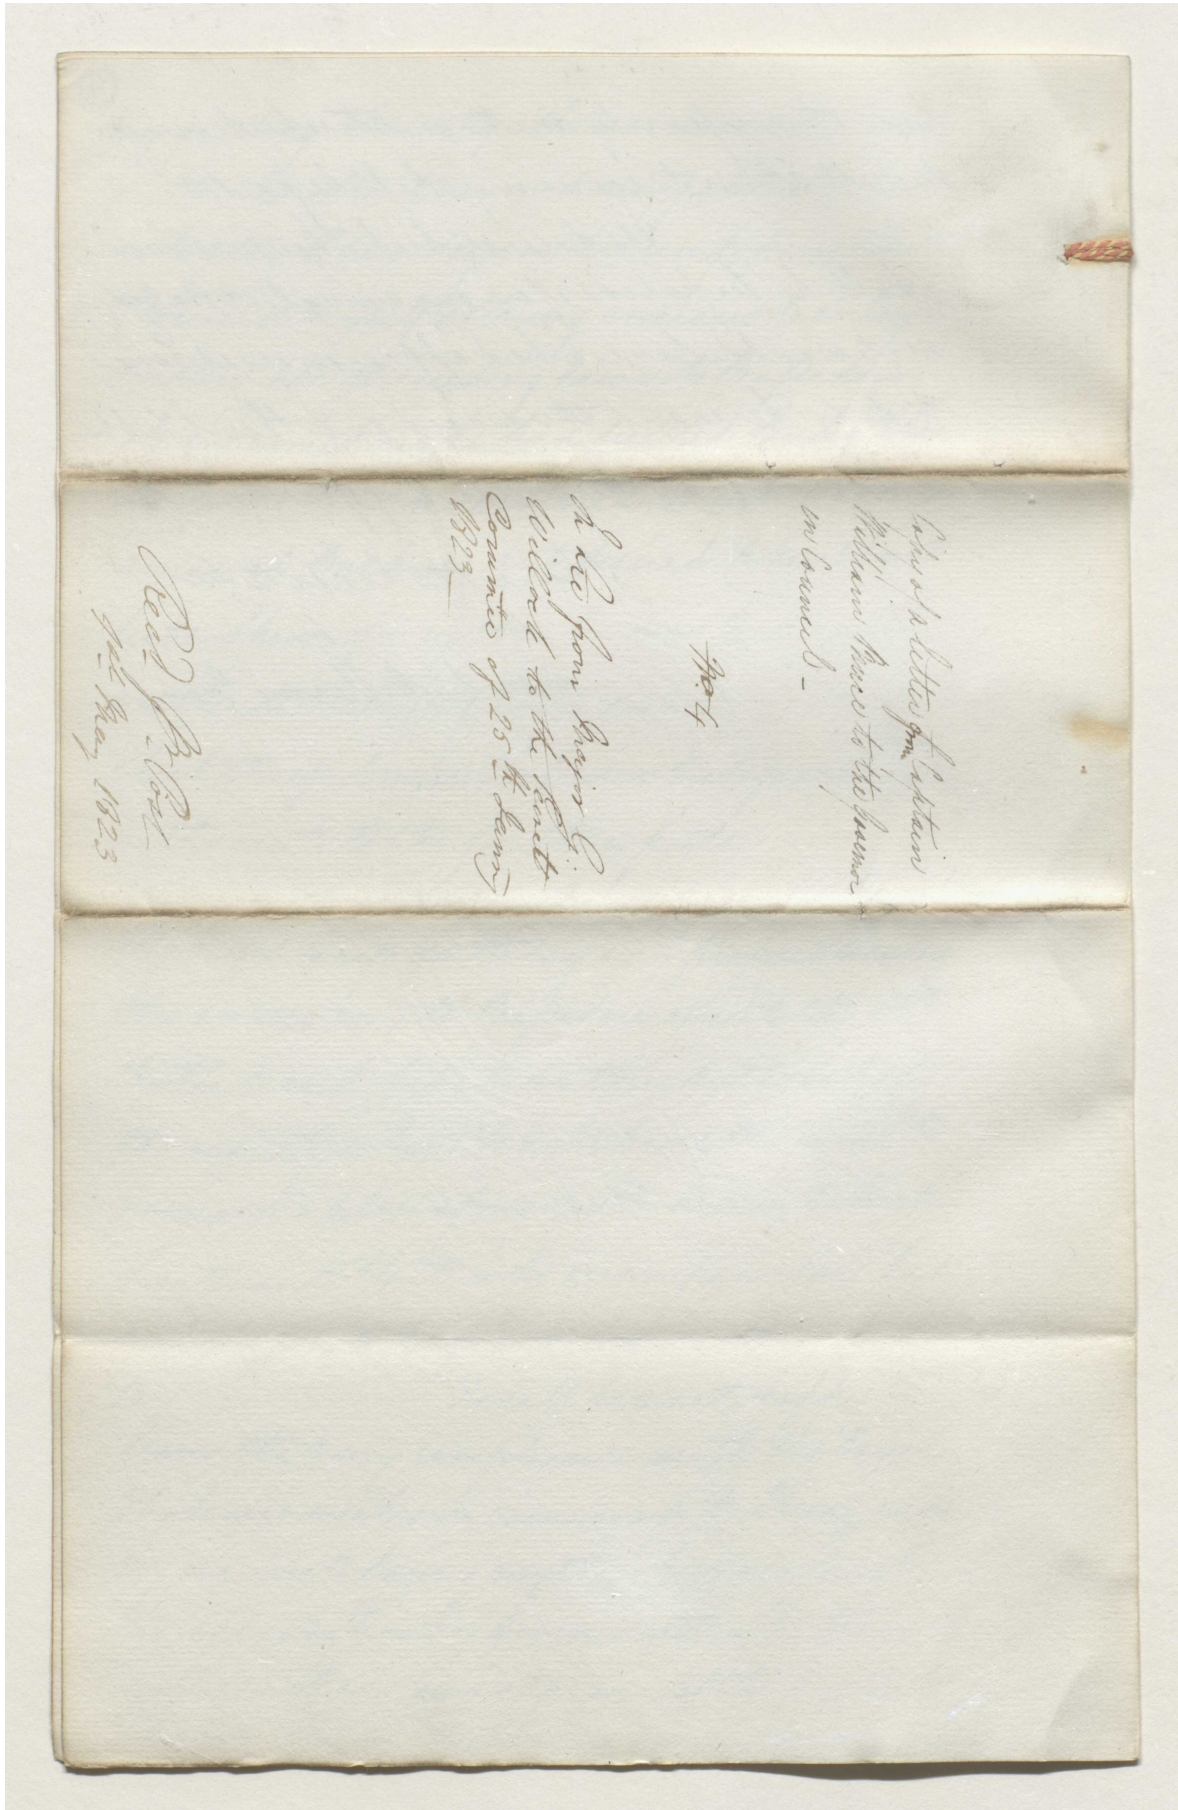 Copy of a letter from Captain
William Bruce to the Governor
in Council -
No. 4
In Lre from Major G.
Willock to the Secret
Commee of 25th Jany
1823 -
Recd P. Post
May 1823